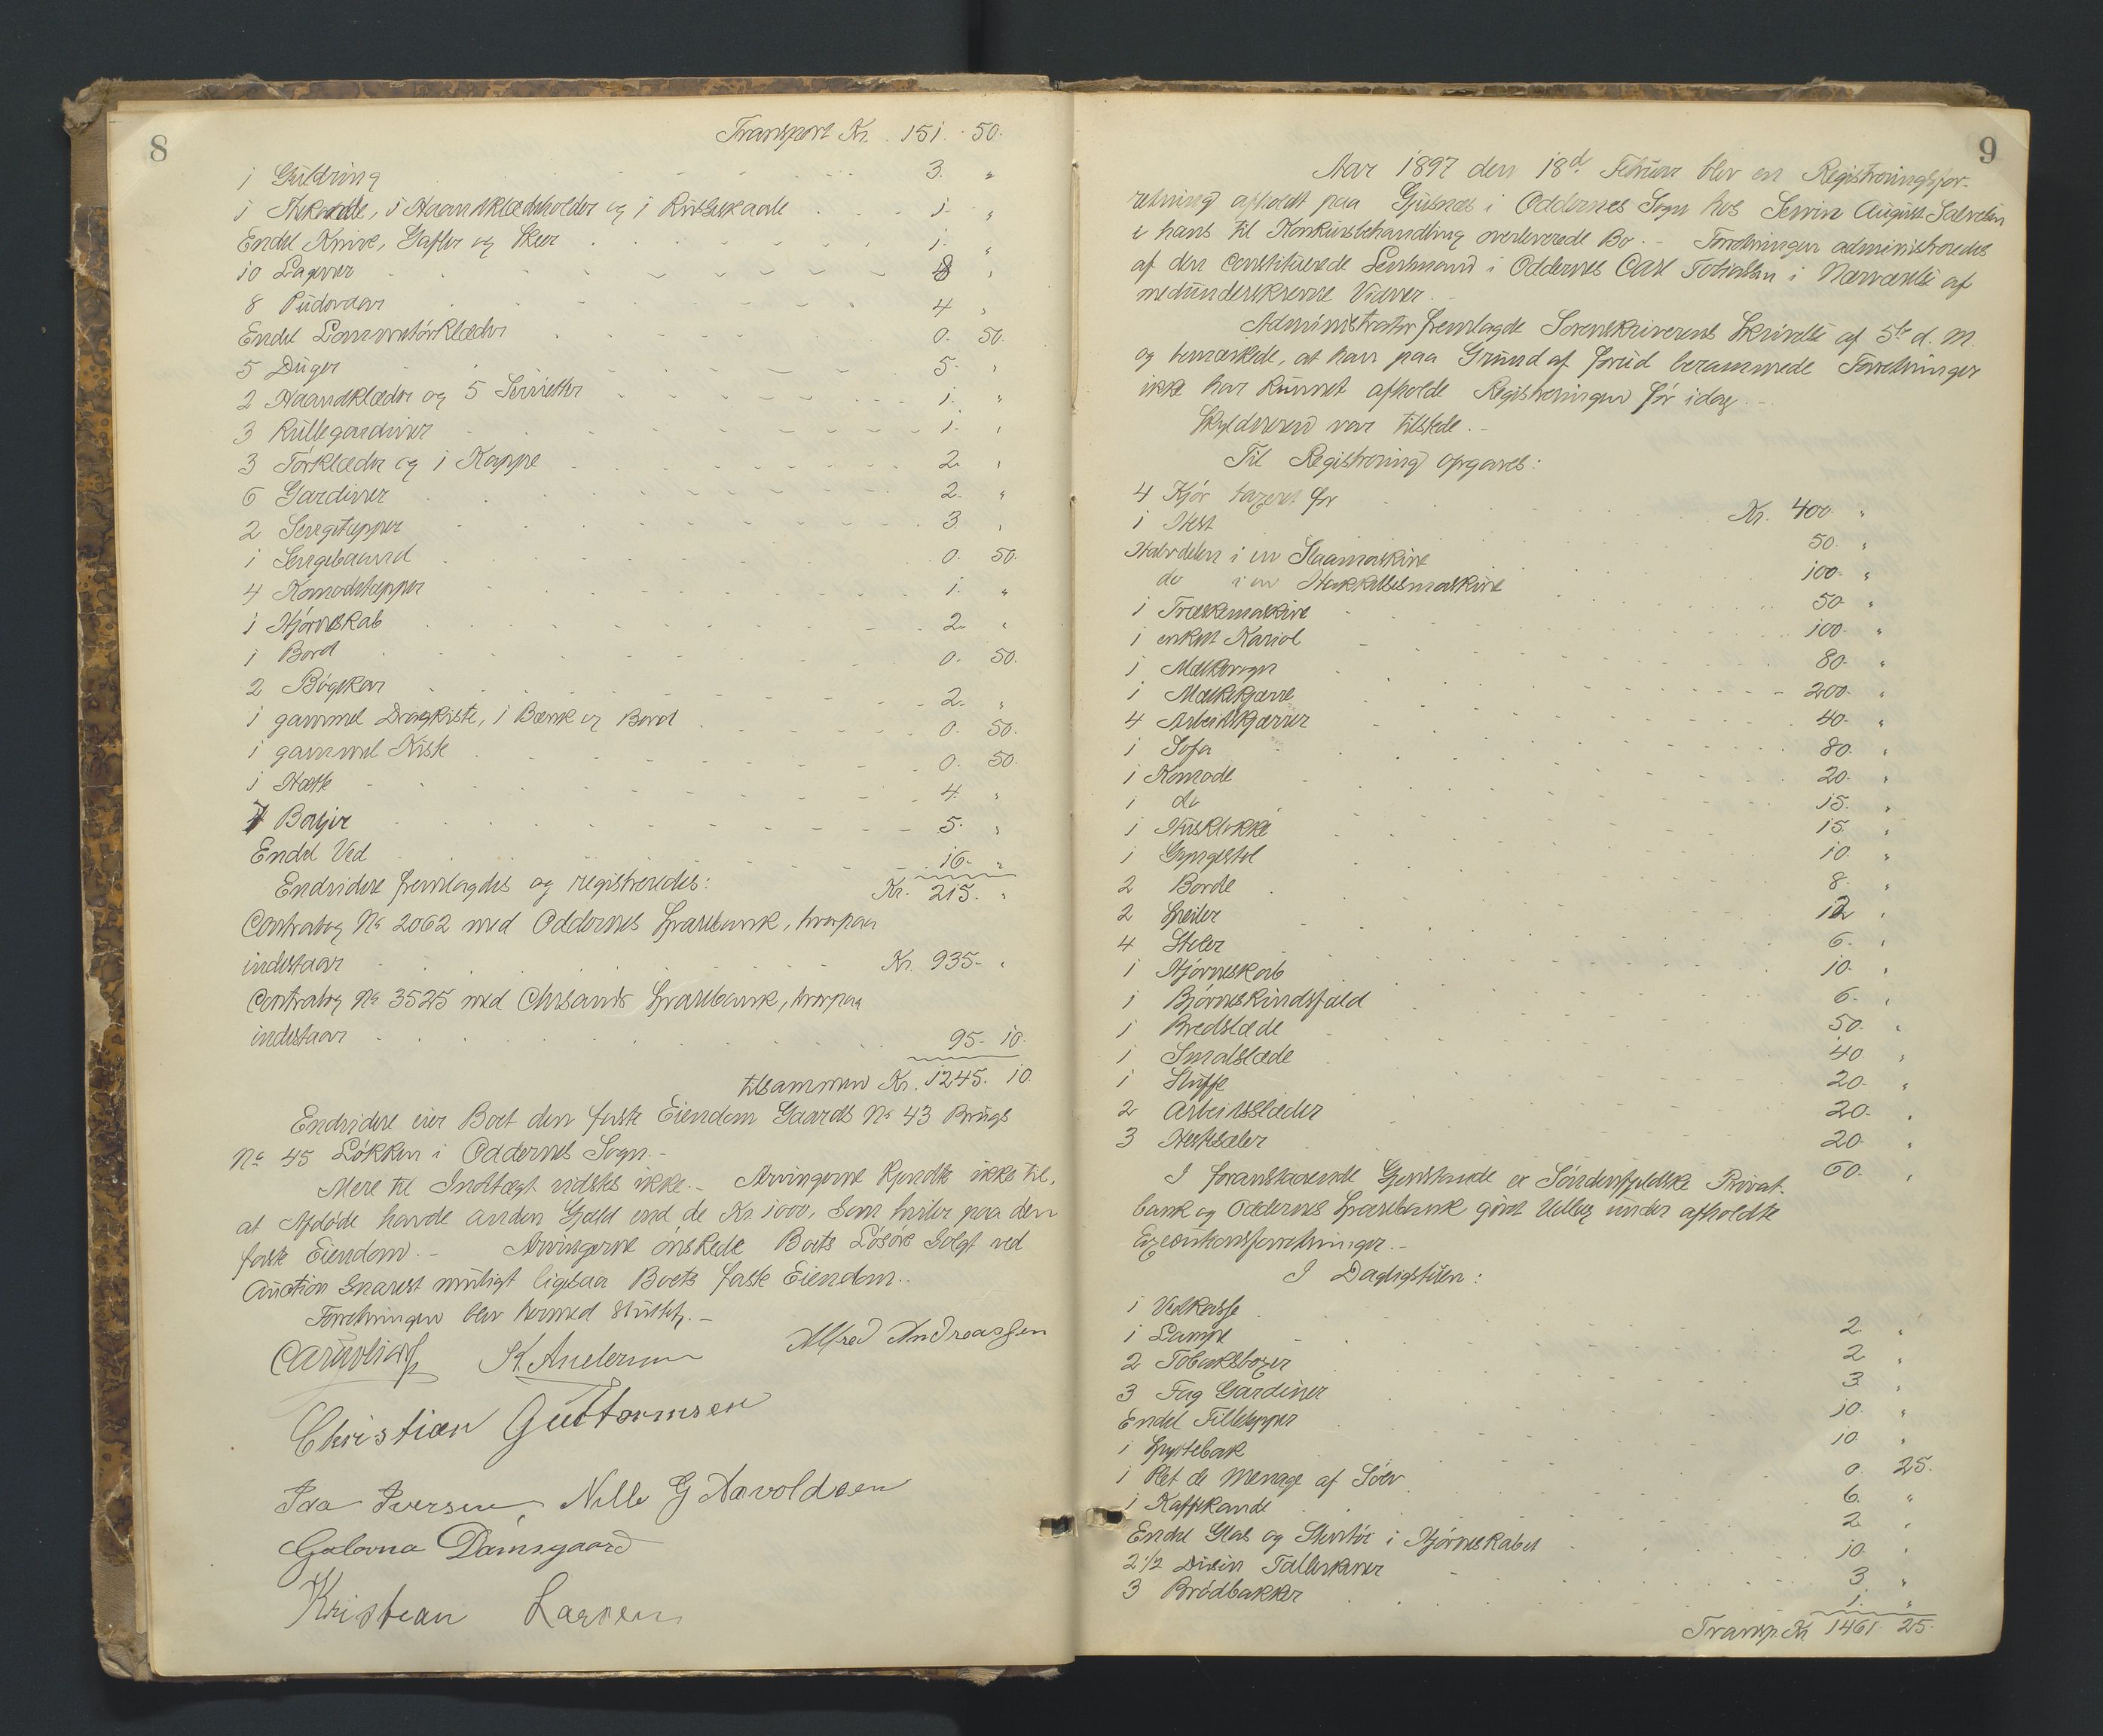 8
Transport Kr. 151. 50.
1 Guldring 3. "
1 Thekande, 1 Haandklædeholder og 1 Kurbskaale 1. "
Endel Knive, Gafler og Skeer 1. "
10 Lagener 8 "
8 Pudevaar 4 "
Endel Lommetørklæder 0. 50.
5 Duger 5. "
2 Haandklæder og 5 Servietter 1. "
3 Rullegardiner 1. "
3 Tørklæder og 1 Kappe 2. "
6 Gardiner 2. "
2 Sengetæpper 3. "
1 Sengebaand 0. 50.
4 Komodetæpper 1. "
1 Hjørneskab 2. "
1 Bord 0. 50.
2 Bøgekar 2. "
1 gammel Dragkiste, 1 Bænk og Bord 0. 50.
1 gammel Kiste 0. 50.
1 4. "
7 Bøljer 5. "
Endel Ved 16. "
Endvidere fremlagdes og registreredes: Kr. 215. "
Contrabog No 2062 med Oddernes Sparebank, hvorpaa
indestaar Kr. 935. "
Contrabog No 3525 med Chrsands Sparebank, hvorpaa
indestaar 95. 10.
tilsammen Kr. 1245. 10.
Endvidere eier Boet den faste Eiendom Gaards No 43 Brugs
No 45 Løkken i Oddernes Sogn.-
Mere til Indtægt vidstes ikke.- Arvingerne kjendte ikke til,
at Afdøde havde anden Gjæld end de Kr. 1000, som hviler paa den
faste Eiendom.- Arvingerne ønskede Boets Løsøre solgt ved
Auction snarest muligt ligesaa Boets faste Eiendom.-
Forretningen blev hermed sluttet.-
K. Andersen Alfred Andreassen
Christian Guttormsen
Ida Iversen, Nille G Aavoldsen
Gulovna Damsgaard
Kristian Larsen
9
Aar 1897 den 18d Februar blev en Registreringsfor-
retning afholdt paa Gjusnæs i Oddernes Sogn hos Servin August Salvesen
i hans til Konkursbehandling overleverede Bo.- Forretningen administreredes
af den constituerede Lensmand i Oddernes Carl Tobiassen i Nærværelse af
medunderskrevne Vidner.
Administrator fremlagde Sorenskriverens Skrivelse af 5te d. M.
og bemærkede, at han paa Grund af forud berammede Forretninger
ikke har kunnet afholde Registreringen før idag.-
Skyldneren var tilstede.-
Til Registrering opgaves:
4 Kjør taxeret for Kr. 400. "
1 Hest 50. "
Halvdelen i en Slaamaskine 100. "
do i en Hakkelsesmaskine 50 "
1 Træskemaskine 100. "
1 enkelt Kariol 80. "
1 Melkevogn 200. "
1 Melkekjærre 40. "
4 Arbeidskjærrer 80. "
1 Sofa 20. "
1 Komode 15. "
1 do 15. "
1 Husklokke 10. "
1 Gyngestol 8. "
2 Borde 12 "
2 Speiler 6. "
4 Stoler 10. "
1 Hjørneskab 6. "
1 Bjørneskindsfæld 50. "
1 Bredslæde 40. "
1 Smalslæde 20. "
1 Sluffe 20. "
2 Arbeidsslæder 20. "
3 Hestesæler 60. "
I foranstaaende Gjenstande er Søndenfjeldske Privat-
bank og Oddernes Sparebank gjort Udlæg under afholdte
Executionsforretninger.-
I Dagligstuen:
1 Vedkasse 2. "
1 Lampe 2. "
2 Tobaksboxer 3. "
3 Fag Gardiner 10. "
Endel Filletæpper 10. "
1 Spyttebak 0. 25.
1 Plet de Menage af Sølv 6. "
1 Kaffekande 2. "
Endel Glas og Stentøi i Hjørneskabet 10. "
2 1/2 Dusin Tallerkener 3. "
3 Brødbakker 1. "
Transp. Kr. 1461. 25.